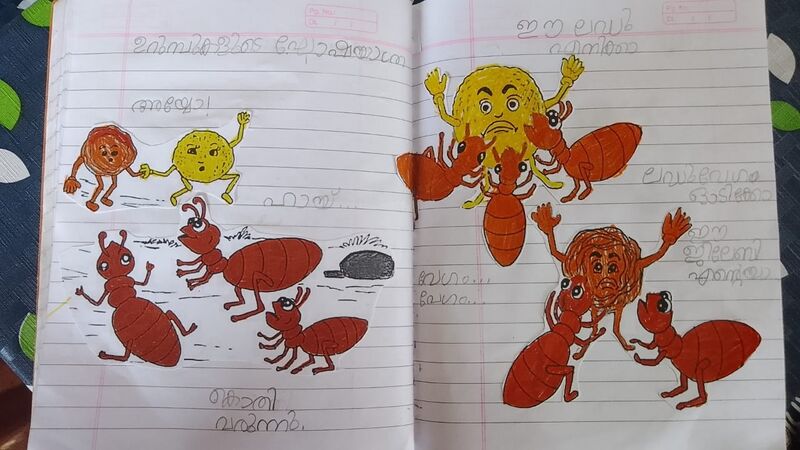 ഉറുമ്പുകളുടെ ഘോഷയാത്ര
അയ്യോ!
ഹായ്...
കൊതി
വരുന്നു.
ഈ ലഡു
എനിക്കാ
ലഡുവേഗം
ഓടിക്കോ
ഈ
ജിലേബി
എന്റെയാ
വേഗം...
വേഗം...
Pg. No.:
Dt. / /